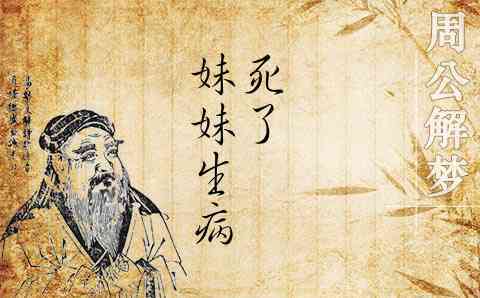 周公解梦
死了
妹妹生病